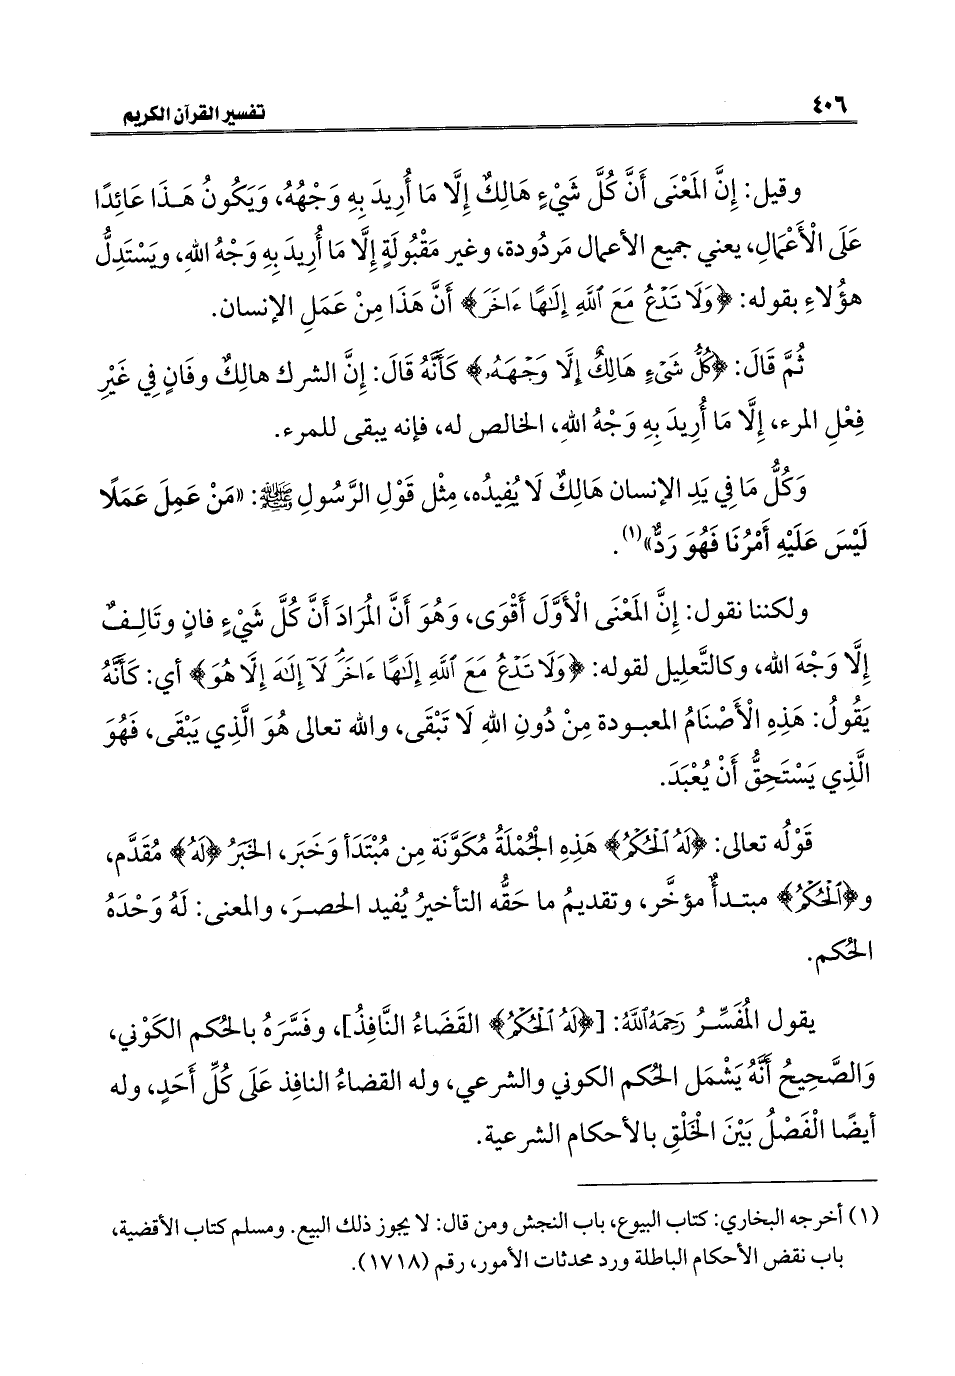 ٤٠٦
تفسير القرآن الكريم
وقيل: إِنَّ المَعْنَى أَنَّ كُلَّ شَيْءٍ هَالِكٌ إِلَّا مَا أُرِيدَ بِهِ وَجْهُهُ، وَيَكُونُ هَذَا عَائِدًا
عَلَى الْأَعْمَالِ، يعني جميع الأعمال مَردُودة، وغير مَقْبُولَةٍ إِلَّا مَا أُرِيدَ بِهِ وَجْهُ اللهِ، ويَسْتَدِلُّ
هؤُلاءِ بقوله: ﴿وَلَا تَدْعُ مَعَ ٱللَّهِ إِلَٰهًا ءَاخَرَ﴾ أَنَّ هَذَا مِنْ عَمَلِ الإنسان.
ثُمَّ قَالَ: ﴿كُلُّ شَىْءٍ هَالِكٌ إِلَّا وَجْهَهُۥ﴾ كَأَنَّهُ قَالَ: إِنَّ الشرك هالِكٌ وفَانٍ فِي غَيْرِ
فِعْلِ المرء، إِلَّا مَا أُرِيدَ بِهِ وَجْهُ اللهِ، الخالص له، فإنه يبقى للمرء.
وَكُلُّ مَا فِي يَدِ الإنسان هَالِكٌ لَا يُفِيدُه، مِثْل قَوْلِ الرَّسُولِ ﷺ: «مَنْ عَمِلَ عَمَلًا
لَيْسَ عَلَيْهِ أَمْرُنَا فَهُوَ رَدٌّ»(١).
ولكننا نقول: إِنَّ المَعْنَى الْأَوَّلَ أَقْوَى، وَهُوَ أَنَّ المُرَادَ أَنَّ كُلَّ شَيْءٍ فانٍ وتَالِفٌ
إِلَّا وَجْهَ الله، وكالتَّعليل لقوله: ﴿وَلَا تَدْعُ مَعَ ٱللَّهِ إِلَٰهًا ءَاخَرَ لَآ إِلَٰهَ إِلَّا هُوَ﴾ أي: كَأَنَّهُ
يَقُولُ: هَذِهِ الْأَصْنَامُ المعبودة مِنْ دُونِ اللهِ لَا تَبْقَى، والله تعالى هُوَ الَّذِي يَبْقَى، فَهُوَ
الَّذِي يَسْتَحِقُّ أَنْ يُعْبَدَ.
قَوْلُه تعالى: ﴿لَهُ ٱلْحُكْمُ﴾ هَذِهِ الْجُمْلَةُ مُكَوَّنَة مِن مُبْتَدَأ وَخَبَر، الخَبَرُ ﴿لَهُ﴾ مُقَدَّم،
و﴿ٱلْحُكْمُ﴾ مبتدأٌ مؤخَّر، وتقديمُ ما حَقُّه التأخيرُ يُفيد الحصرَ، والمعنى: لَهُ وَحْدَهُ
الحُكم.
يقول المُفَسِّرُ رَحِمَهُ ٱللَّهُ: [﴿لَهُ ٱلْحُكْمُ﴾ القَضَاءُ النَّافِذُ]، وفَسَّرَهُ بالحُكم الكَوْني،
وَالصَّحِيحُ أَنَّهُ يَشْمَل الحُكم الكوني والشرعي، وله القضاءُ النافذ عَلَى كُلِّ أَحَدٍ، وله
أيضًا الْفَصْلُ بَيْنَ الخَلْقِ بالأحكام الشرعية.
(١) أخرجه البخاري: كتاب البيوع، باب النجش ومن قال: لا يجوز ذلك البيع. ومسلم كتاب الأقضية،
باب نقض الأحكام الباطلة ورد محدثات الأمور، رقم (١٧١٨).